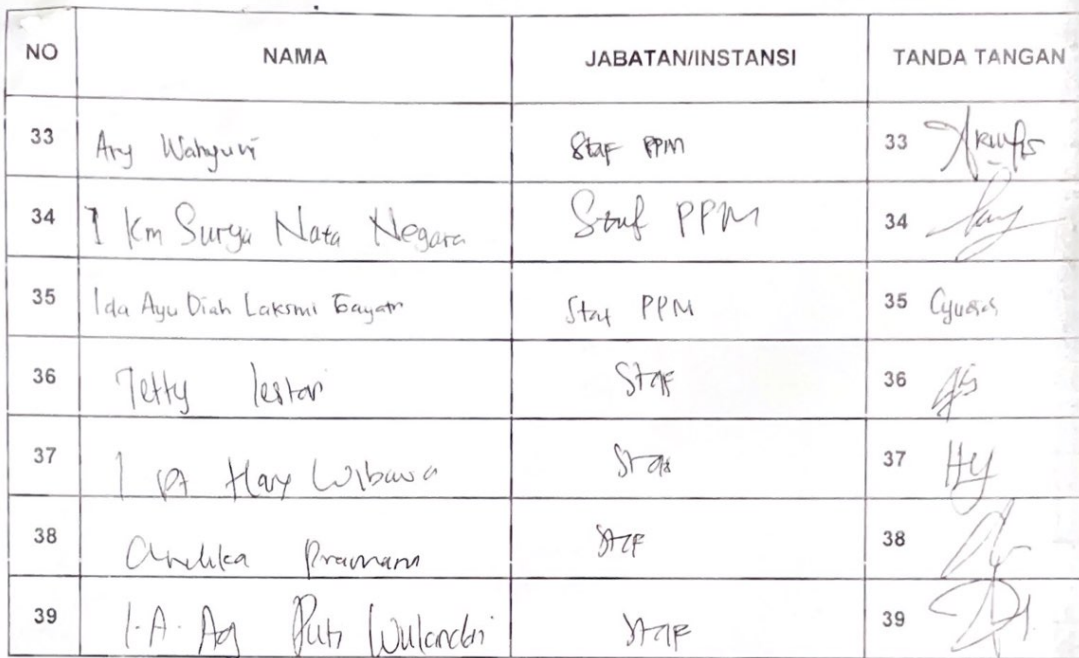 NO NAMA JABATAN/INSTANSI TANDA TANGAN
33 Ary Wahyuni Staf PPM 33
34 I Km Surya Nata Negara Staf PPM 34
35 Ida Ayu Diah Laksmi Gayatri Staf PPM 35
36 Tetty lestari Staf 36
37 I Hary Wibawa Staf 37
38 Andika Pramana Staf 38
39 I.A. Ag Putri Wulandari Staf 39